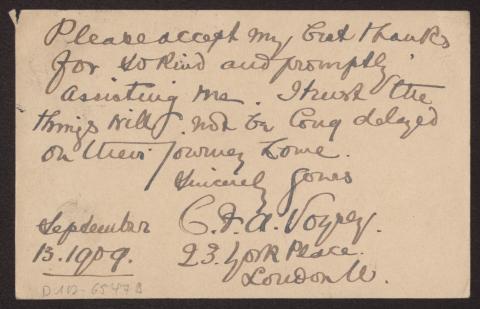 Please accept my best thanks
for so kind and promptly
assisting me. I trust the
things will not be long delayed
on their journey home.
Sincerely yours
C. F. A. Voysey.
September
13. 1909.
23. York Place.
London W.
D 102-6547 B